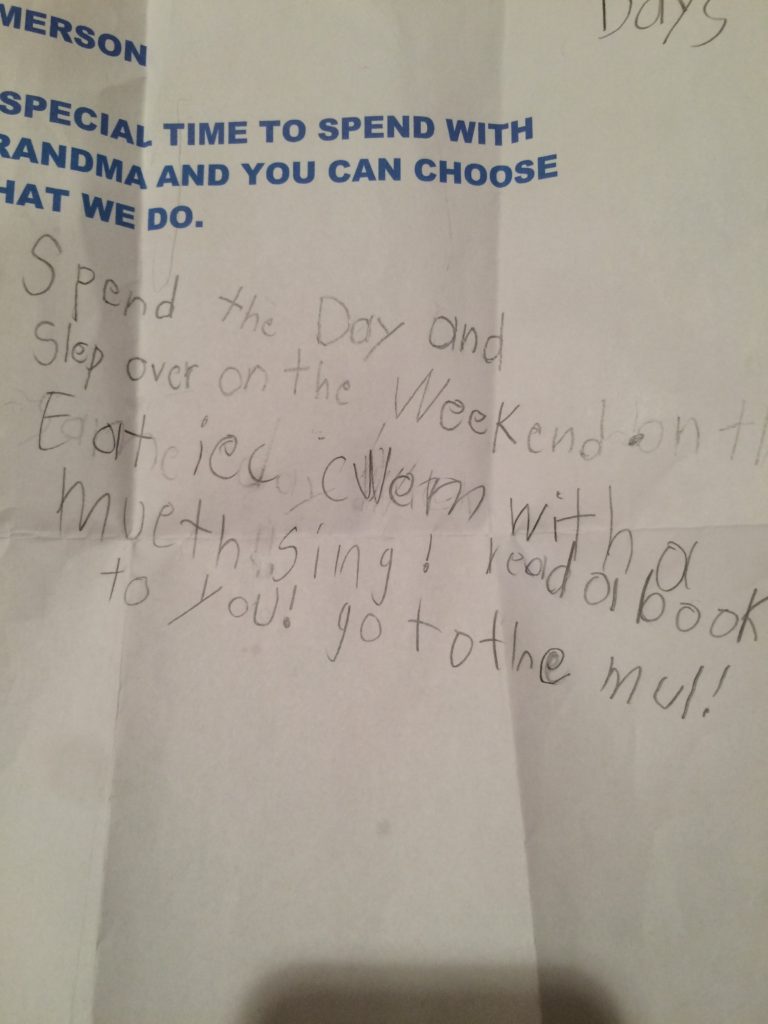 Days
MERSON
SPECIAL TIME TO SPEND WITH
RANDMA AND YOU CAN CHOOSE
HAT WE DO.
Spend the Day and
Slep over on the Weekend on th
Eat iec cwem with a
mueth sing! read a book
to you! go to the mul!